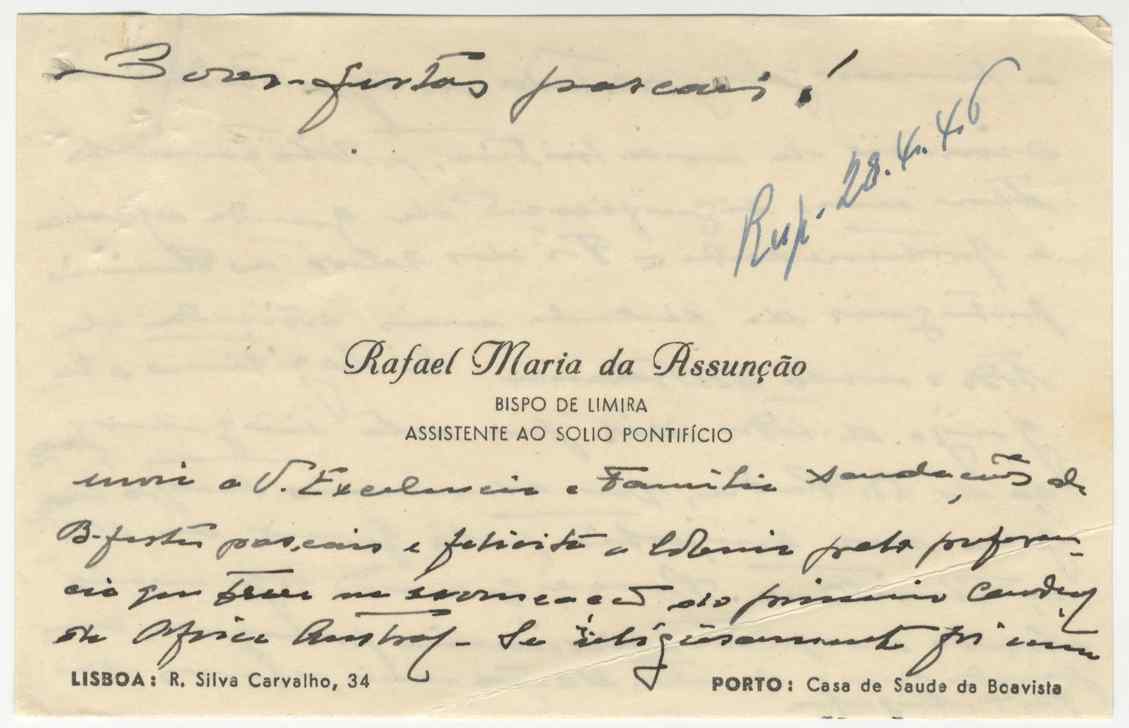 Boas-festas pascais!
28.4.46
Rafael Maria da Assunção
BISPO DE LIMIRA
ASSISTENTE AO SOLIO PONTIFÍCIO
envia a V. Excelencia e Familia saudações de
B-festas pascais e felicita a Colonia pela preferen-
cia que teve na nomeação do primeiro Cardeal
da Africa Austral - Se religiosamente foi uma
LISBOA: R. Silva Carvalho, 34
PORTO: Casa de Saude da Boavista